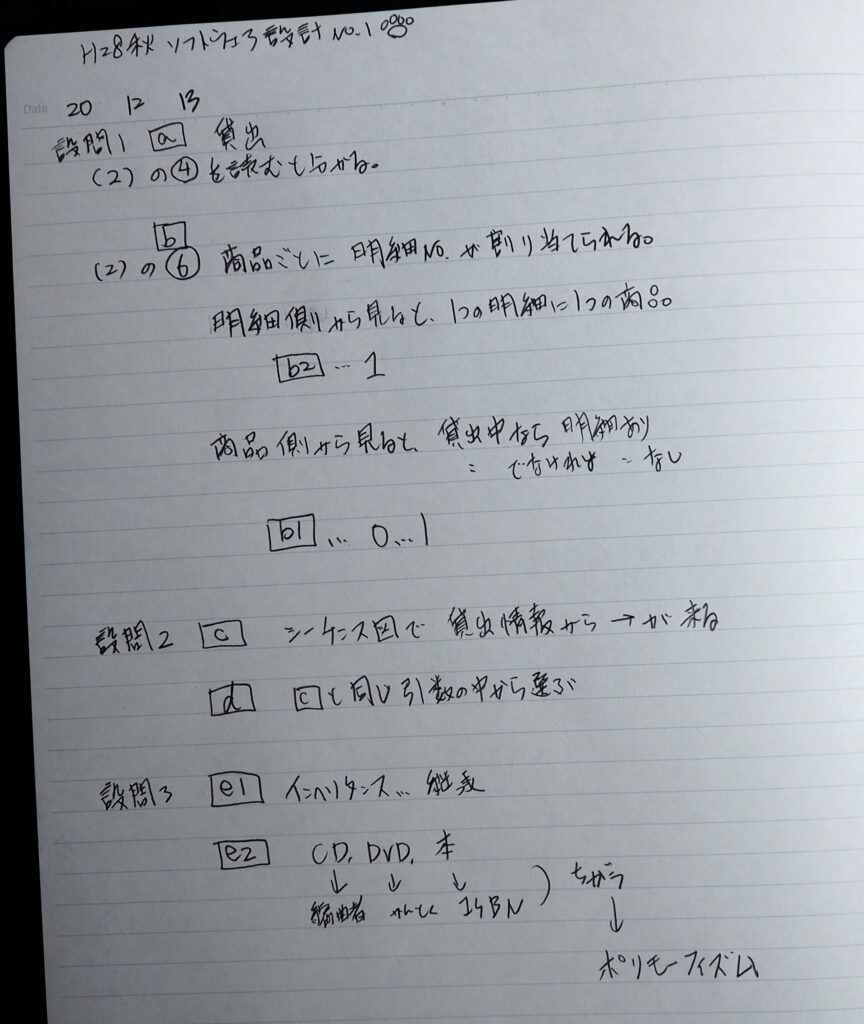 H28秋 ソフトウェア設計 No.1
Date 20 12 13
設問1 a 貸出
(2)の④を読むと分かる。
b
(2)の⑥ 商品ごとに 明細No.が割り当てられる。
明細側から見ると、1つの明細に1つの商品
b2 … 1
商品側から見ると、貸出中なら 明細あり
〃 でなければ 〃 なし
b1 … 0…1
設問2 c シーケンス図で 貸出情報から → が来る
d cと同じ引数の中から選ぶ
設問3 e1 インヘリタンス… 継承
e2 CD, DVD, 本
↓ ↓ ↓ ) ちがう
かんとく ISBN
↓
ポリモーフィズム